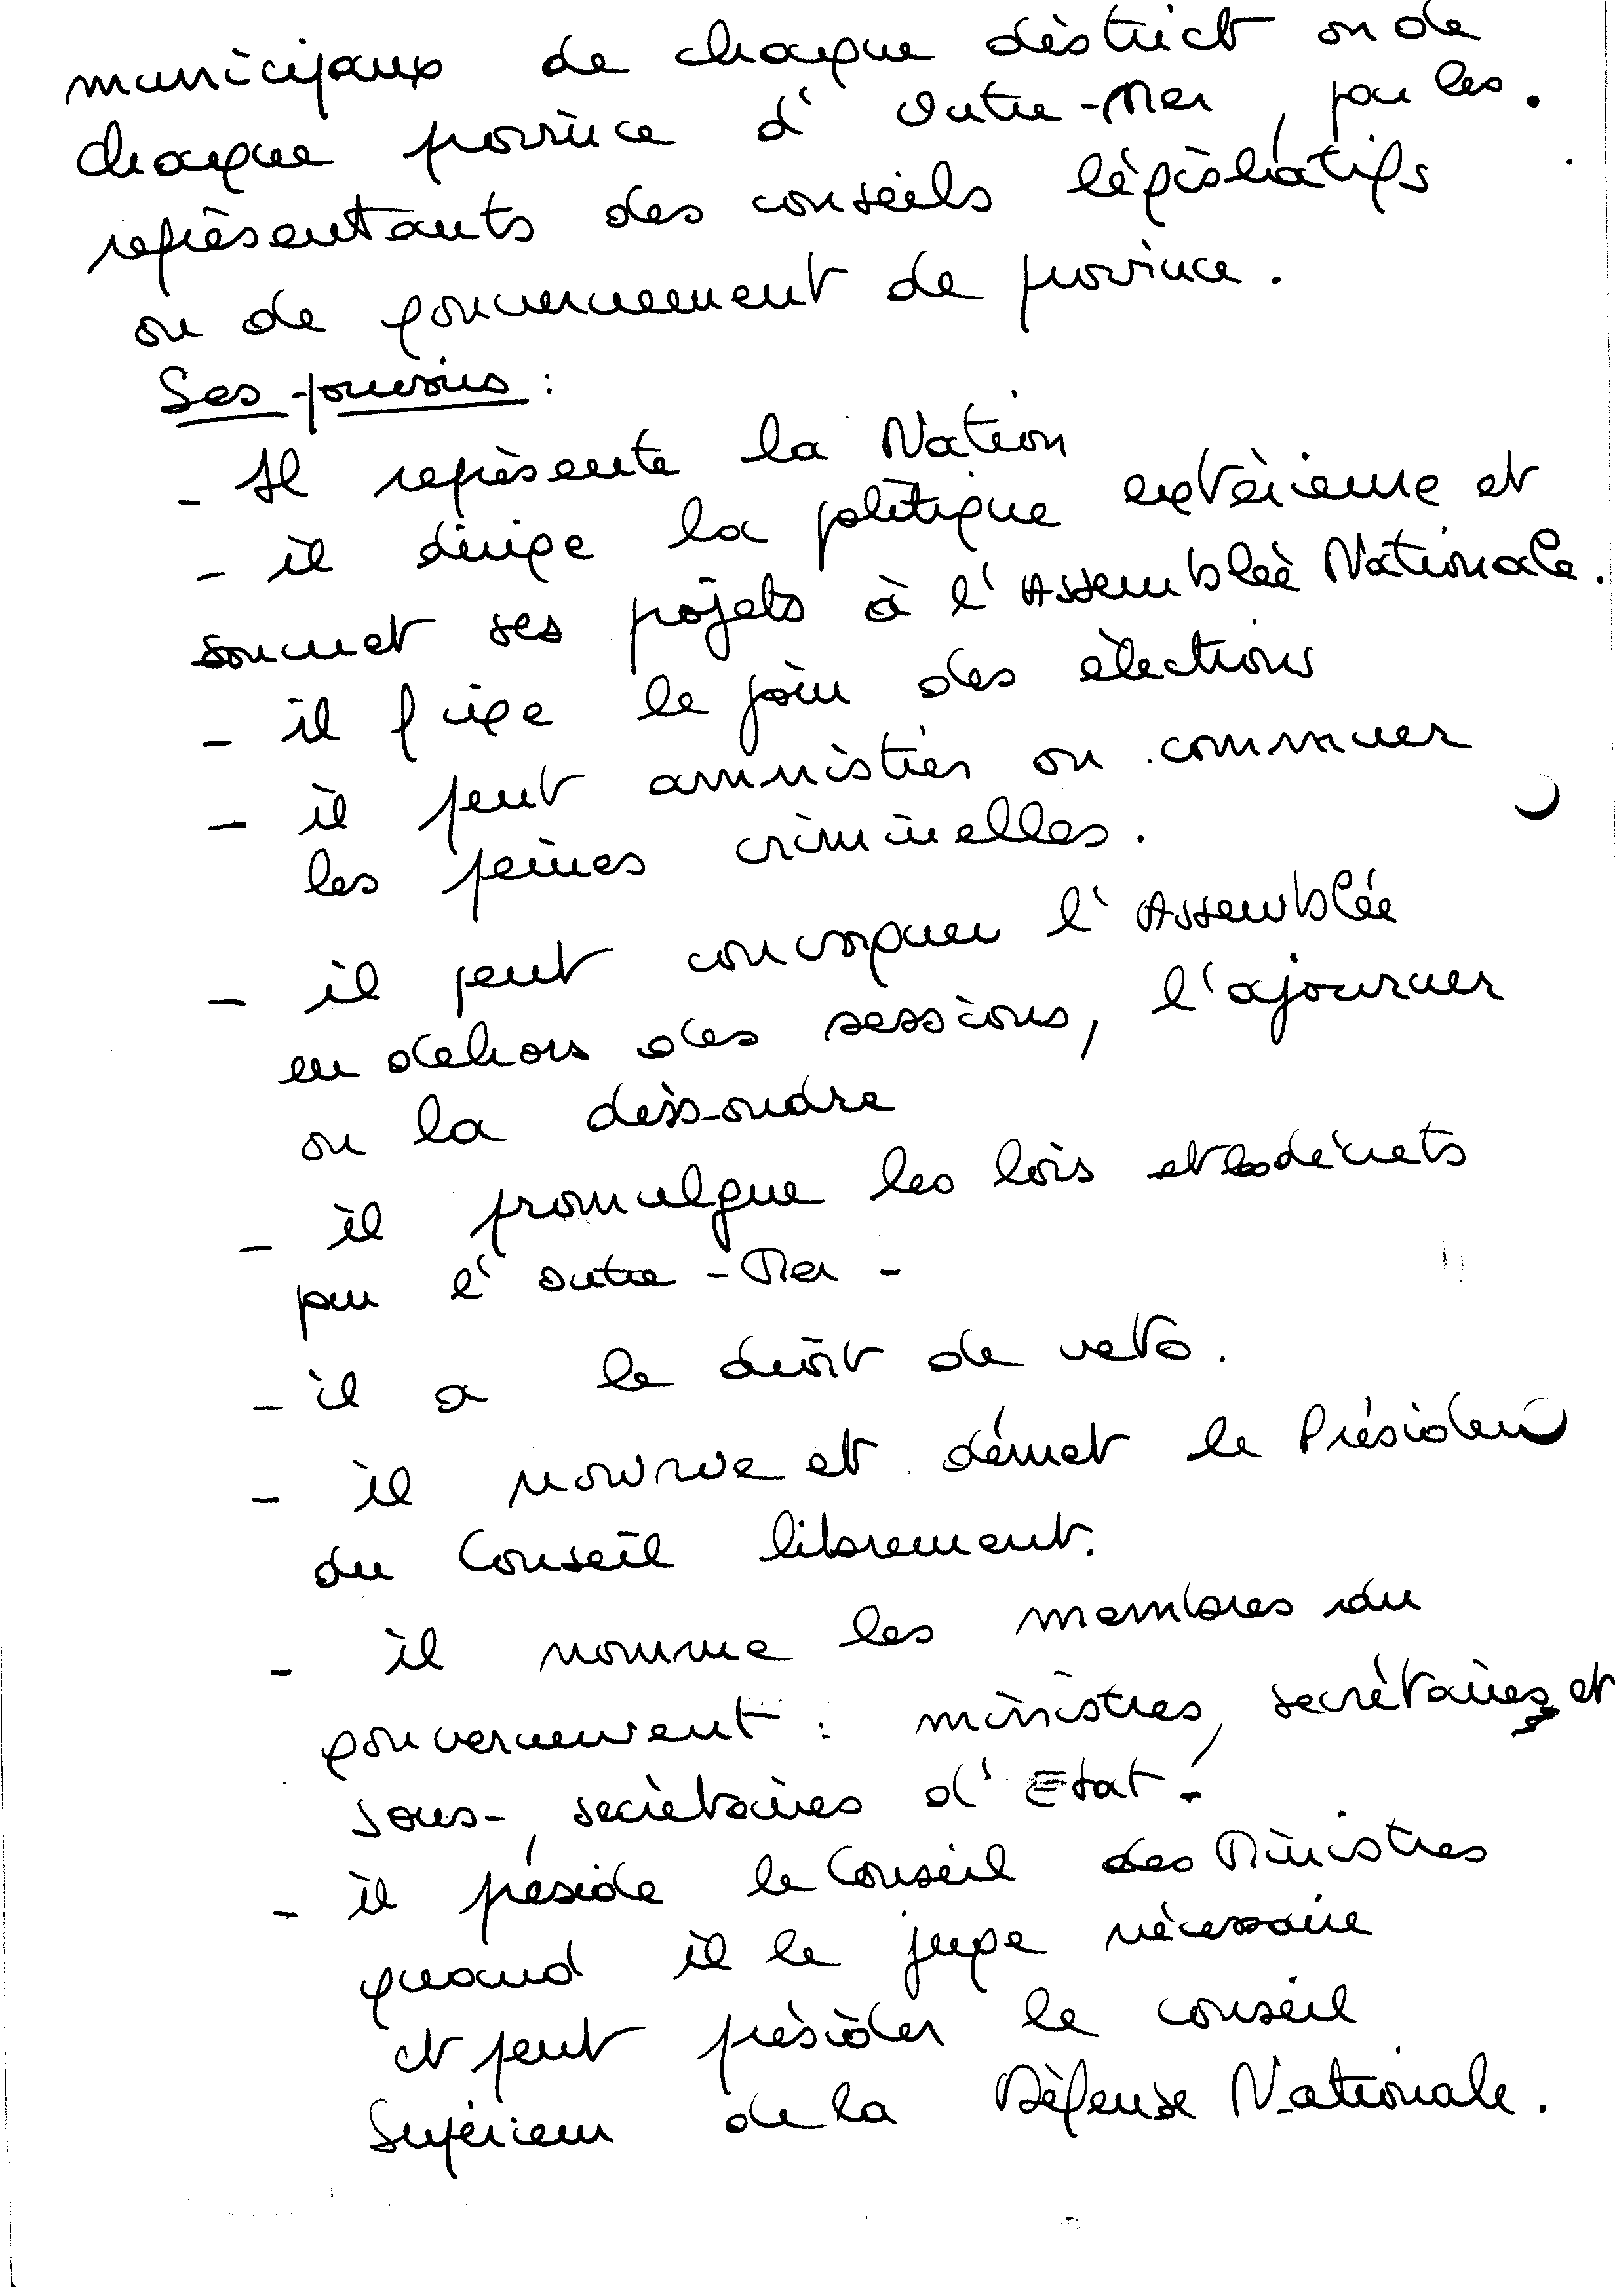 municipaux de chaque district ou de
chaque province d'Outre-Mer, par les
représentants des conseils législatifs
ou de gouvernement de province.
Ses pouvoirs :
- Il représente la Nation
- il dirige la politique extérieure et
soumet ses projets à l'Assemblée Nationale.
- il fixe le jour des élections
- il peut amnistier ou commuer
les peines criminelles.
- il peut convoquer l'Assemblée
en dehors des sessions, l'ajourner
ou la dissoudre
- il promulgue les lois et les décrets
pour l'Outre-Mer -
- il a le droit de veto.
- il nomme et démet le Président
du Conseil librement.
- il nomme les membres du
gouvernement : ministres, secrétaires et
sous-secrétaires d'Etat -
- il préside le Conseil des Ministres
quand il le juge nécessaire
et peut présider le conseil
Supérieur de la Défense Nationale.